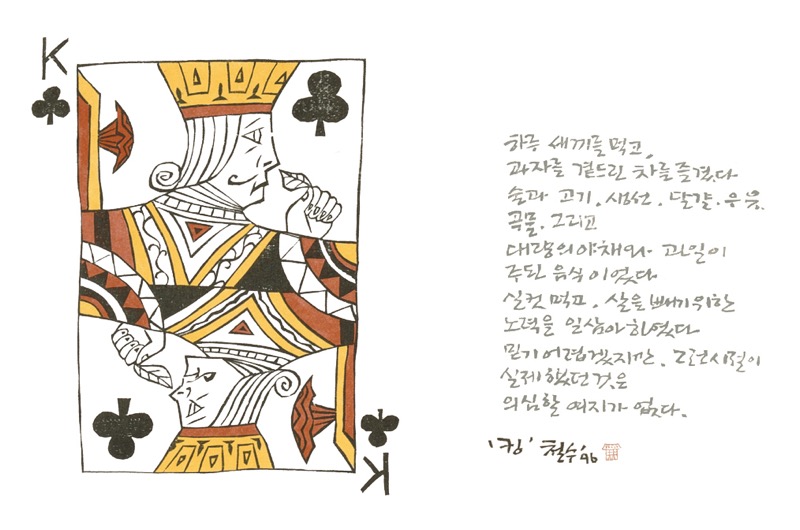 K
하루 세끼를 먹고,
과자를 곁드린 차를 즐겼다
술과 고기. 생선. 달걀. 우유.
곡물. 그리고
대량의 야채와 과일이
주된 음식이었다
실컷 먹고. 살을 빼기 위한
노력을 일삼아 하였다
믿기 어렵겠지만. 그런 시절이
실제 했던 것은
의심할 여지가 없다.
'킹' 철수 '96
K